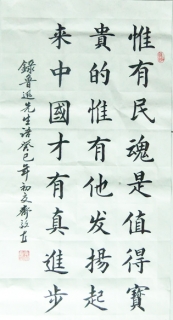 惟有民魂是值得寳
貴的惟有他发揚起
来中國才有真進步
錄魯迅先生語癸巳年初夏